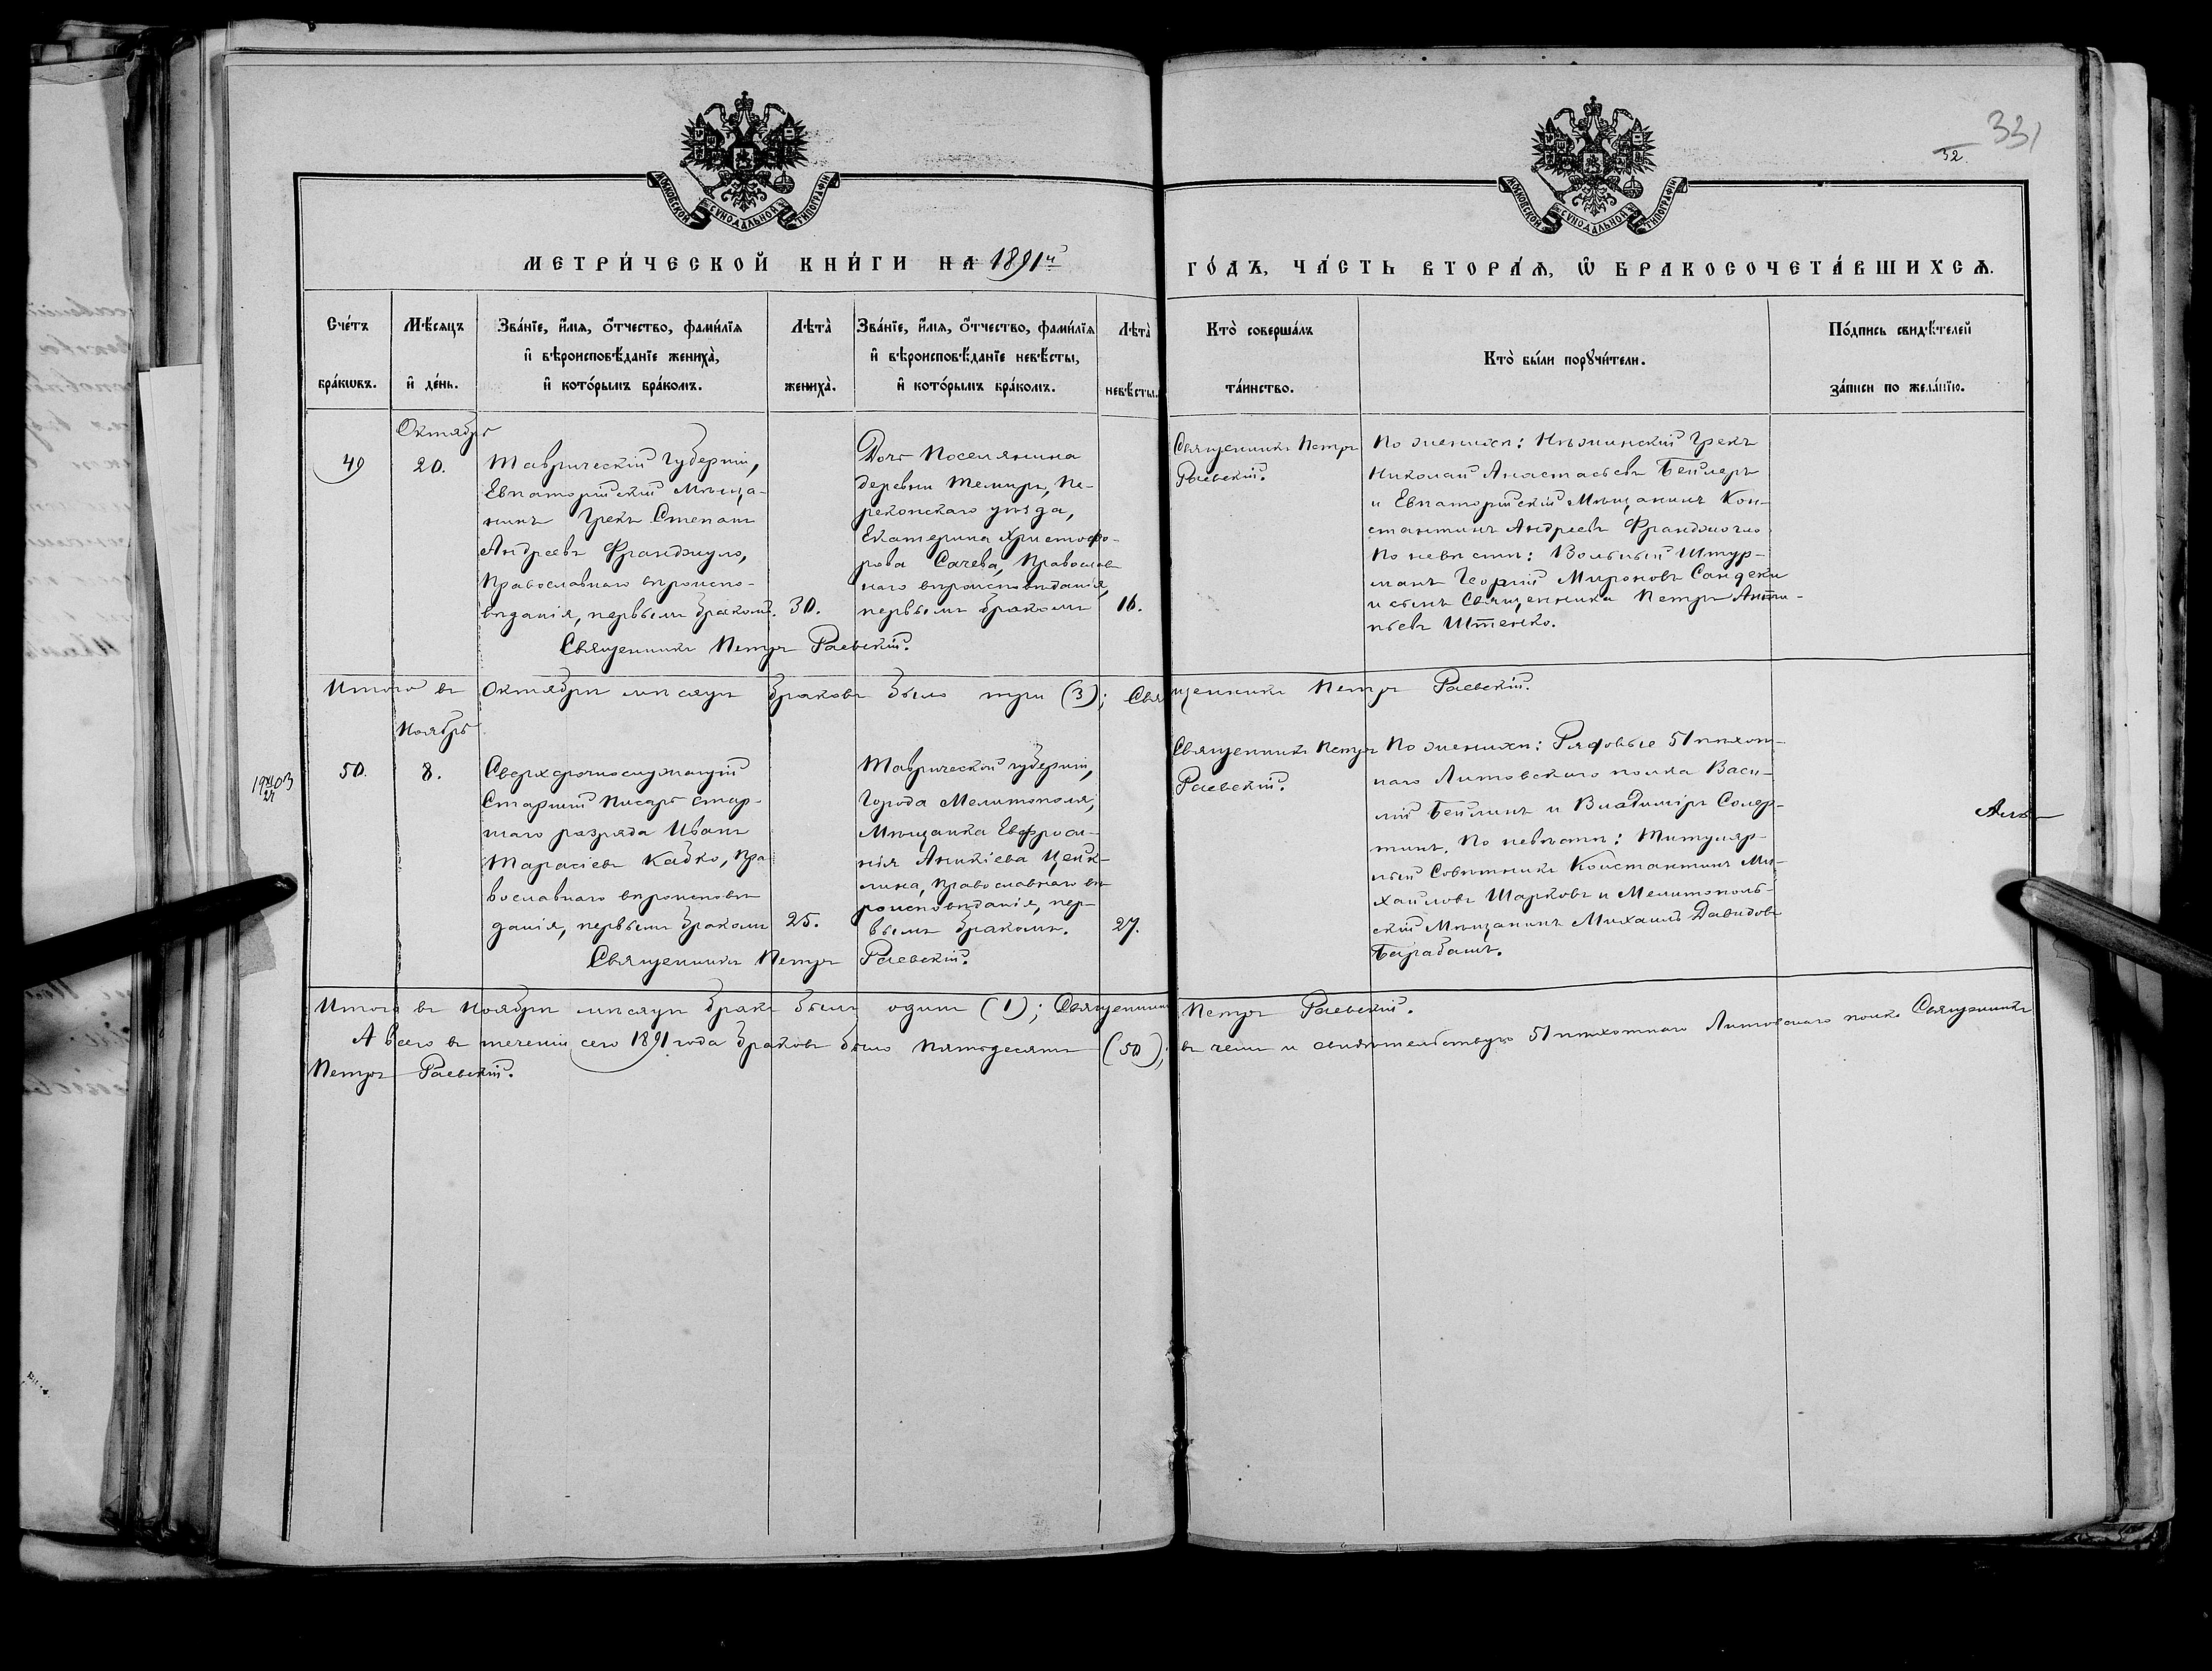 331
32.
МОСКОВСКОЙ СѴНОДАЛЬНОЙ ТИПОГРАФІИ
МОСКОВСКОЙ СѴНОДАЛЬНОЙ ТИПОГРАФІИ
МЕТРИ́ЧЕСКОЙ КНИ́ГИ НА 1891й
ГО́ДЪ, ЧА́СТЬ ВТОРА́Я, Ѡ҆ БРАКОСОЧЕТА́ВШИХСЯ.
Сче́тъ
бра́кѡвъ.
Мѣ́сяцъ
и҆ де́нь.
Зва́нїе, и҆́мя, ѻ҆́тчество, фами́лїя
и҆ вѣроисповѣ́данїе жениха̀,
и҆ кото́рымъ бра́комъ.
Лѣта̀
жениха̀.
Зва́нїе, и҆́мя, ѻ҆́тчество, фами́лїя
и҆ вѣроисповѣ́данїе невѣ́сты,
и҆ кото́рымъ бра́комъ.
Лѣта̀
невѣ́сты.
Кто̀ соверша́лъ
та́инство.
Кто̀ бы́ли порꙋчи́тели.
По́дпись свидѣ́телей
за́писи по жела́нїю.
49
Октябрь
20.
Таврической Губерніи,
Евпаторійскій Мѣща-
нинъ Грекъ Степанъ
Андреевъ Франджуло,
Православнаго вѣроиспо-
вѣданія, первымъ бракомъ.
30.
Дочь Поселянина
деревни Темиръ, Пе-
рекопскаго уѣзда,
Екатерина Христофо-
рова Сачева, Православ
наго вѣроисповѣданія,
первымъ бракомъ
16.
Священникъ Петръ
Раевскій.
По женихѣ: Нѣжинскій Грекъ
Николай Анастасьевъ Бейлеръ
и Евпаторійскій Мѣщанинъ Кон-
стантинъ Андреевъ Франджогло
По невѣстѣ: Вольный Штур-
манъ Георгій Мироновъ Сандеки
и сынъ Священника Петръ Анти-
пьевъ Штенко.
Священникъ Петръ Раевскій.
Итого въ Октябрѣ мѣсяцѣ браковъ было три (3); Священникъ Петръ Раевскій.
50.
Ноябрь
8.
Сверхсрочнослужащій
Старшій Писарь стар-
шаго разряда Иванъ
Тарасіевъ Кабко, Пра
вославнаго вѣроисповѣ
данія, первымъ бракомъ
25.
Таврической губерніи,
Города Мелитополя,
Мѣщанка Евфроси-
нія Аникіева Цейк-
лина, Православнаго вѣ
роисповѣданія, пер-
вымъ бракомъ.
27.
Священникъ Петръ
Раевскій.
По женихѣ: Рядовые 51 пѣхот-
наго Литовскаго полка Васи-
лій Бейлинъ и Владиміръ Солер-
тинъ. По невѣстѣ: Титуляр-
ный Совѣтникъ Константинъ Ми-
хайловъ Шарковъ и Мелитополь-
скій Мѣщанинъ Михаилъ Давидовъ
Барабашъ.
Священникъ Петръ Раевскій.
Итого въ Ноябрѣ мѣсяцѣ бракъ былъ одинъ (1); Священникъ Петръ Раевскій.
А всего въ теченіи сего 1891 года браковъ было пятьдесятъ (50); въ чемъ и свидѣтельствую 51 пѣхотнаго Литовскаго полка Священникъ
Петръ Раевскій.